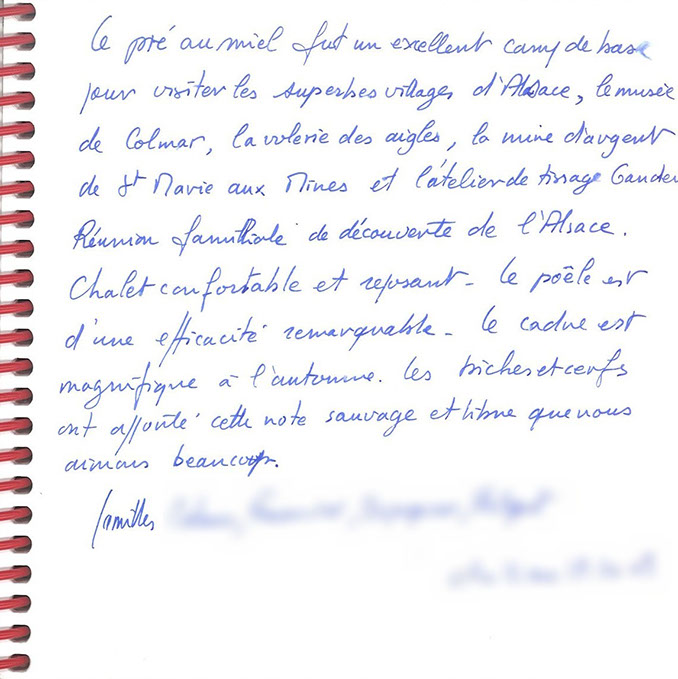 Le pré au miel fut un excellent camp de base
pour visiter les superbes villages d'Alsace, le musée
de Colmar, la volerie des aigles, la mine d'argent
de St Marie aux Mines et l'atelier de tissage Gander
Réunion familiale de découverte de l'Alsace.
Chalet confortable et reposant - Le poêle est
d'une efficacité remarquable - Le cadre est
magnifique à l'automne. Les biches et cerfs
ont ajouté cette note sauvage et libre que nous
aimons beaucoup.
familles